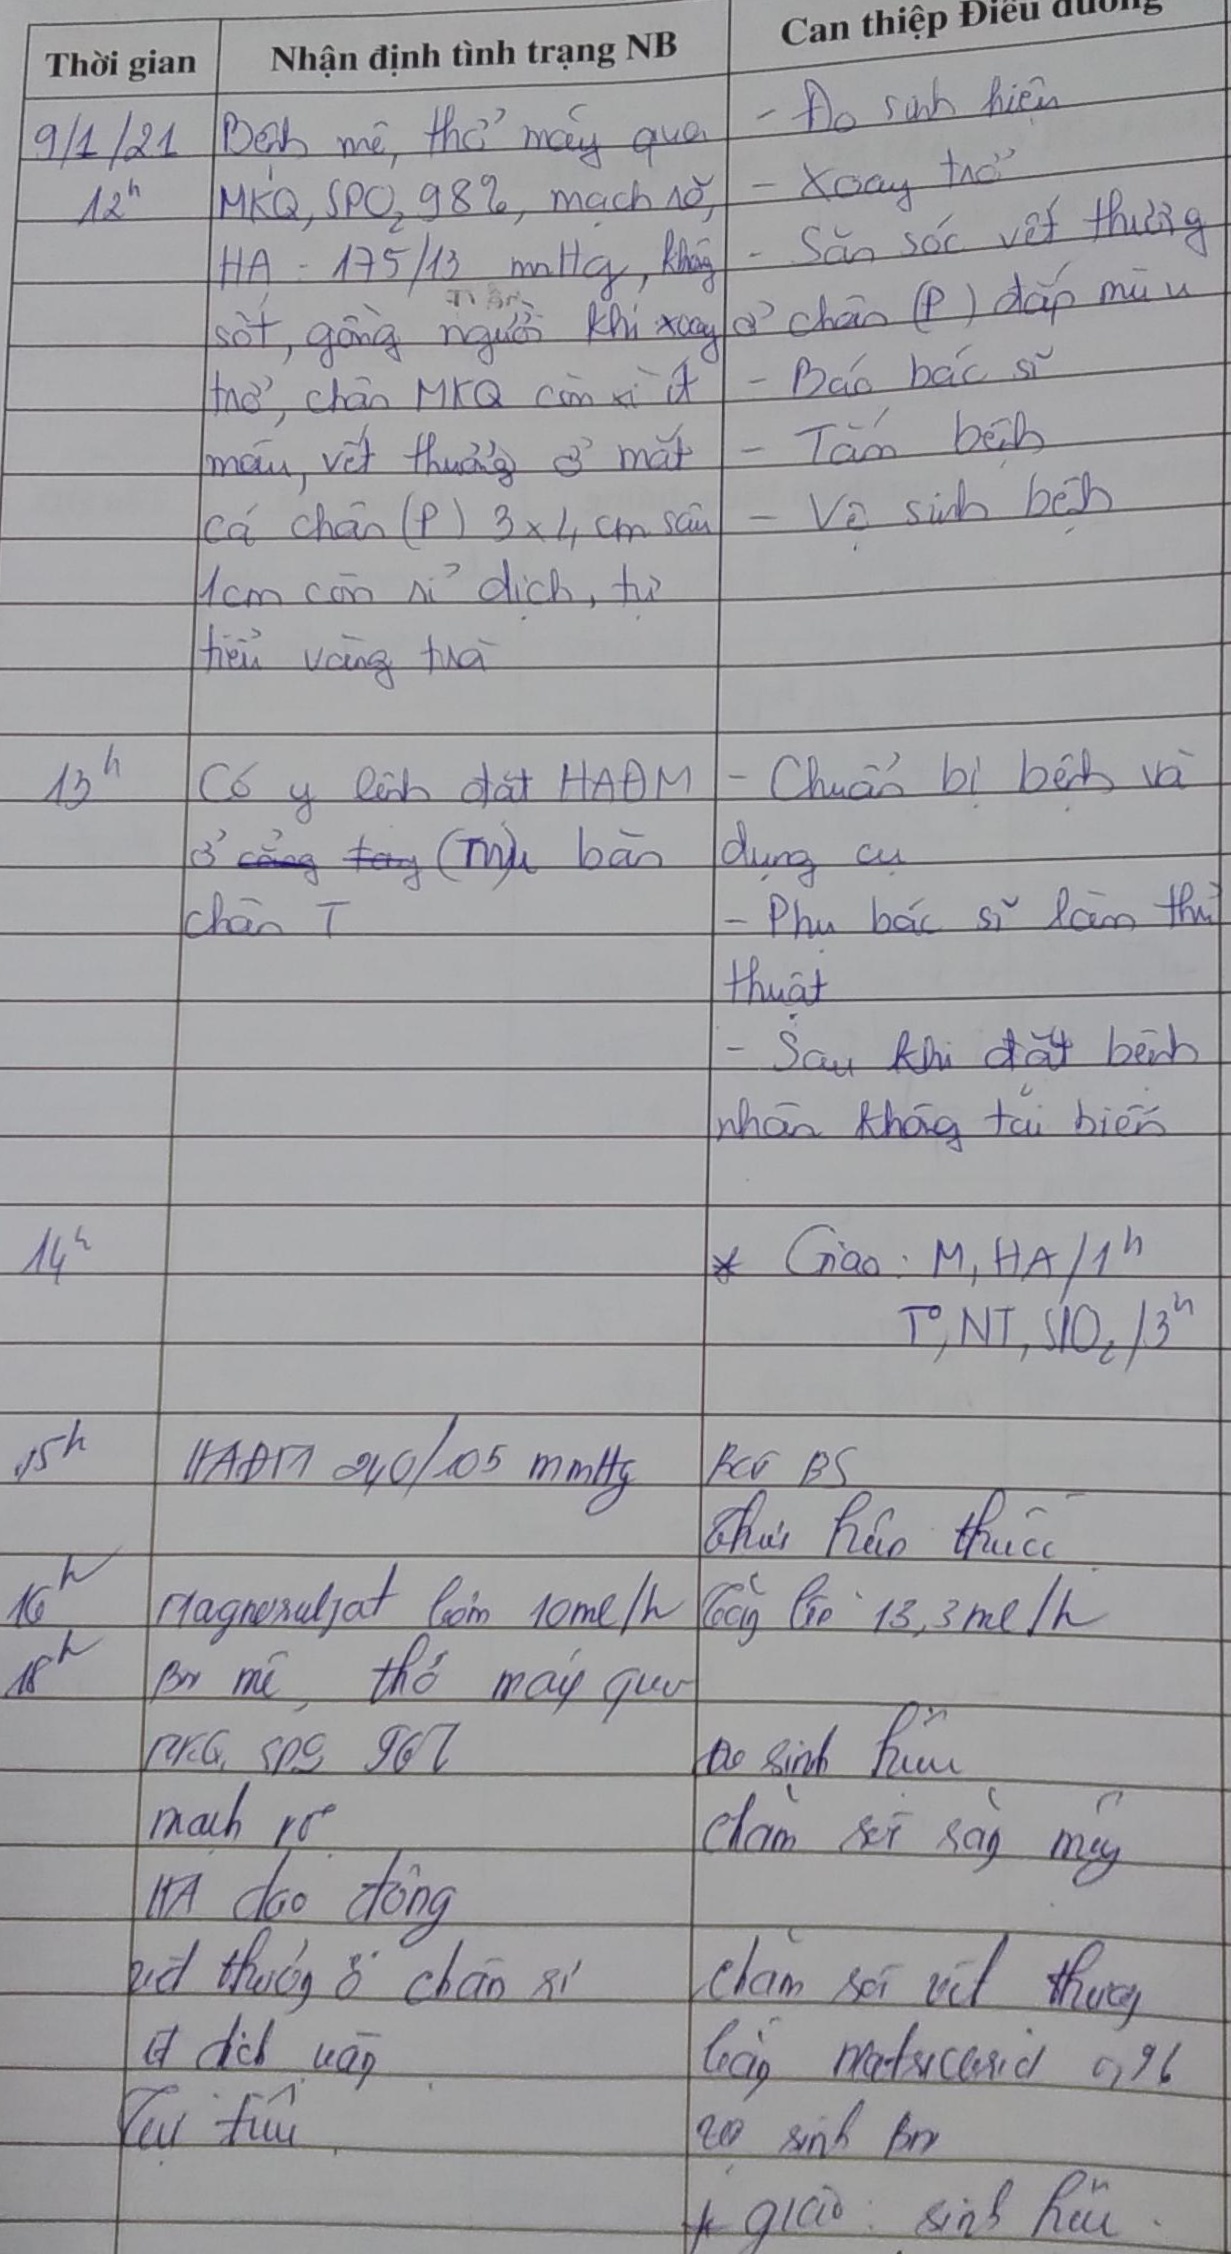 Thời gian
Nhận định tình trạng NB
Can thiệp Điều dưỡng
9/1/21
12h
Bệnh mê, thở máy qua
MKQ, SPO2 98%, mạch rõ,
HA = 175/13 mmHg, không
sốt, gồng người khi xoay
trở, chân MKQ còn rỉ ít
máu, vết thương ở mắt
cá chân (P) 3x4 cm sâu
1cm còn rỉ dịch, tự
tiểu vàng trà
- Đo sinh hiệu
- Xoay trở
- Săn sóc vết thương
ở chân (P) đắp mũ
- Báo bác sĩ
- Tắm bệnh
- Vệ sinh bệnh
13h
Có y lệnh đặt HAĐM
ở cẳng tay (T) mu bàn
chân T
- Chuẩn bị bệnh và
dụng cụ
- Phụ bác sĩ làm thủ
thuật
- Sau khi đặt bệnh
nhân không tai biến
14h
* Giao: M, HA/1h
T°, NT, SPO2/3h
15h
HAĐM 240/105 mmHg
Báo BS
thuốc
16h
Magnesulfat bơm 10ml/h
tăng lên 13,3ml/h
18h
BN mê, thở máy qua
MKQ, SPO2 96%
mạch rõ
HA dao động
vết thương ở chân rỉ
ít dịch vàng
Tự tiểu
Đo sinh hiệu
chăm sóc máy
chăm sóc vết thương
băng 0,9%
vệ sinh BN
* giao: sinh hiệu.